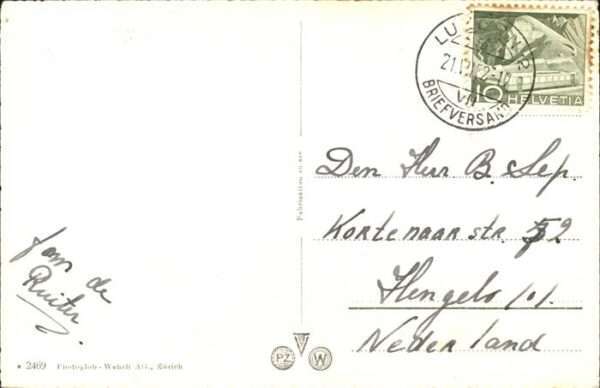 LUZERN
21.
BRIEFVERSAND
10 HELVETIA
Den Heer B. Sep.
Kortenaar str. 52
Hengelo
Nederland
Fam de
Ruiter.
2469 Photoglob-Wehrli AG., Zürich
PZ W